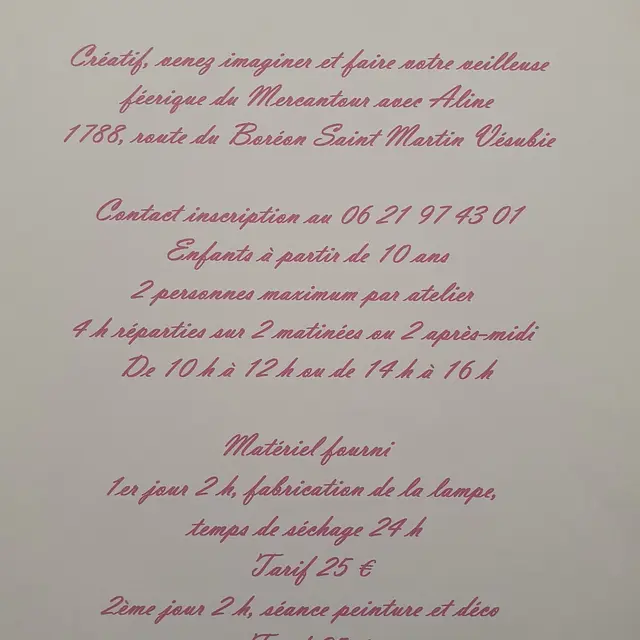 Créatif, venez imaginer et faire votre veilleuse
féerique du Mercantour avec Aline
1788, route du Boréon Saint Martin Vésubie
Contact inscription au 06 21 97 43 01
Enfants à partir de 10 ans
2 personnes maximum par atelier
4 h réparties sur 2 matinées ou 2 après-midi
De 10 h à 12 h ou de 14 h à 16 h
Matériel fourni
1er jour 2 h, fabrication de la lampe,
temps de séchage 24 h
Tarif 25 €
2ème jour 2 h, séance peinture et déco